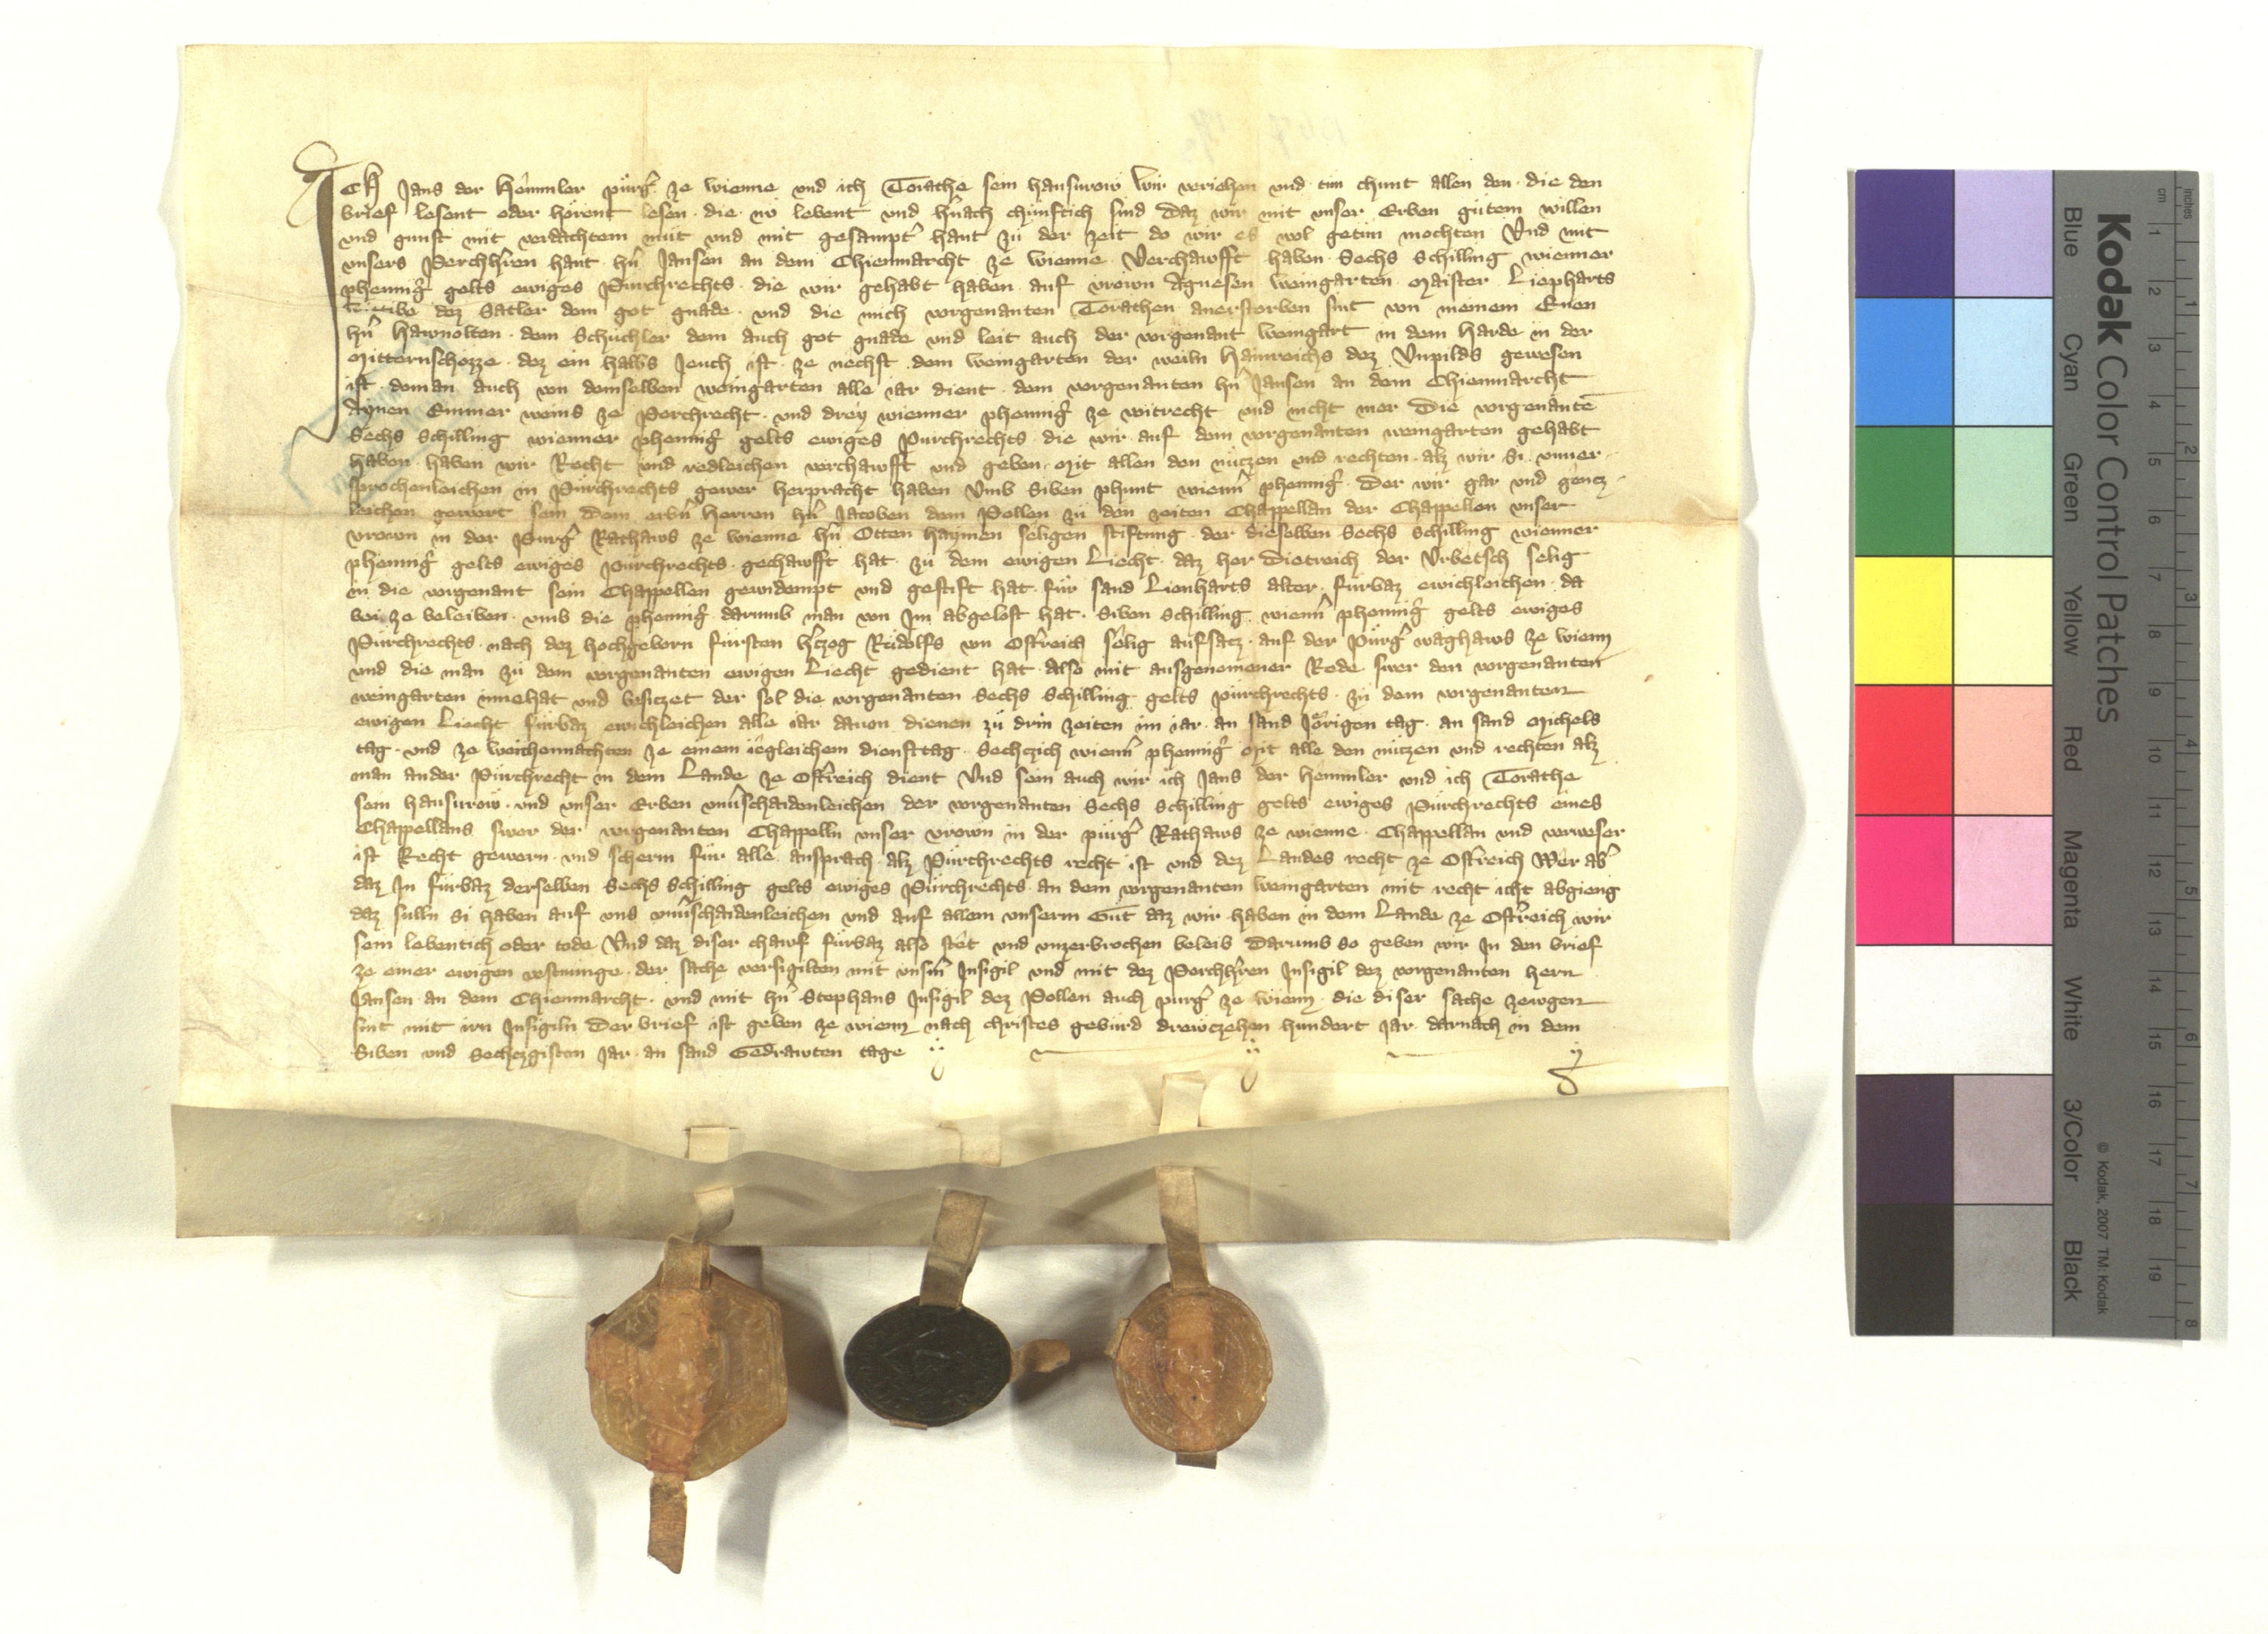 Ich Jans der Hemmler pürg̾ ze wienne vnd ich Torathe sein hausurow wir veriehen vnd tun chunt allen den die den
brief lesent oder hörent lesen die nv lebent vnd hn̄ach chünftich sind daz wir mit vnser Erben gütem willen
vnd gunst mit verdachtem müt vnd mit gesampt̾ hant zü der zeit do wir es wol getun mochten Vnd mit
vnsers Perchhr̄en hant hn̄ Jansen an dem Chienmarcht ze wienne Verchawfft haben Sechs schilling wienner
phennig̾ gelts ewiges Purchrechts die wir gehabt haben auf vrown Agnesen weingarten Maister Liepharts
dez Satler dem got gnade vnd die mich vorgenanten Torathen anerstorben sint von meinem Enen
hn̄ Hawnolten dem Schüchler dem auch got gnade vnd leit auch der vorgenant weingart in dem Harde in der
Mitternschozze dez ein halbs Jeuch ist ze nechst dem weingarten der weiln Hainreichs dez Vnpilds gewesen
ist doman auch von demselben weingarten alle iar dient dem vorgenanten hn̄ Jansen an dem Chienmarcht
Aynen Emmer weins ze Perchrecht vnd drey wienner phennig̾ ze voitrecht vnd nicht mer Die vorgenante̅
Sechs schilling wienner phennig̾ gelts ewiges Purchrechts die wir auf dem vorgenanten weingarten gehabt
haben haben wir Recht vnd redleichen verchawfft vnd geben Mit allen den nützen vnd rechten alz wir Si vnuer
sprochenleichen in Pürchrechts gewer herpracht haben Vmb Siben phunt wienn̄ phennig̾ Der wir gar vnd gencz
leichen gewert sein Dem erbn̄ Herren hn̄ Jacoben dem Pollen zü den zeiten Chappellan der Chappellen vnser
vrown in der Purg̾ Rathaws ze wienne hn̄ Otten Haymen seligen stiftung der dieselben Sechs schilling wienner
phennig̾ gelts ewiges Purchrechts gechawfft hat zü dem ewigen Liecht daz her Dietreich der Vrbetsch selig
in die vorgenant sein Chappellen gewidempt vnd gestift hat für sand Lienharts alter fürbaz ewichleichen da
bei ze beleiben vmb die phennig̾ darumb man von Im abgelost hat Siben schilling wienn̄ phennig̾ gelts ewiges
Pürchrechts nach dez hochgeborn fürsten h̾czog Rüdolfs von Ost̾reich selig aufsatz auf der Pürg̾ waghaws ze wienn
vnd die man zü dem vorgenanten ewigen Liecht gedient hat also mit ausgenomener Rede swer den vorgenanten
weingarten innehat vnd besiczet der sol die vorgenanten Sechs schilling gelts pürchrechts zü dem vorgenanten
ewigen Liecht fürbaz ewichleichen alle iar dauon dienen zü drin zeiten im iar an sand Jörigen tag an sand Michels
tag vnd ze weichennachten ze einem iegleichem diensttag Sechczich wienn̄ phennig̾ Mit alle den nützen vnd rechten alz
man ander Pürchrecht in dem Lande ze Ost̾reich dient Vnd sein auch wir ich Jans der Hemmler vnd ich Torathe
sein hausurow vnd vnser Erben vnu̾schaidenleichen der vorgenanten Sechs schilling gelts ewiges Pürchrechts eines
Chappellans swer der vorgenanten Chappelln vnser vrown in der pürg̾ Rathaws ze wienne Chappellan vnd verweser
ist Recht gewern vnd scherm für alle ansprach alz Pürchrechts recht ist vnd dez Landes recht ze Ost̾reich Wer ab̾
daz In fürbaz derselben Sechs schilling gelts ewiges Pürchrechts an dem vorgenanten weingarten mit recht icht abgieng
daz sulln si haben auf vns vnu̾schaidenleichen vnd auf allem vnserm Güt daz wir haben in dem Lande ze Ost̾reich wir
sein lebentich oder tode Vnd daz diser chawf fürbaz also stet vnd vnzerbrochen beleib Darumb so geben wir In den brief
ze einer ewigen vestnunge der sache versigilten mit vnsm̄ Insigil vnd mit dez Perchhr̄en Insigil dez vorgenanten hern
Jansen an dem Chienmarcht vnd mit hn̄ Stephans Insigil dez Pollen auch purg̾ ze wienn die diser sache zewgen
sint mit irn Insigiln Der brief ist geben ze wienn nach christes gebürd drewczehen hundert Jar darnach in dem
Siben vnd Sechczgisten Jar an sand Gedrawten tage
Kodak Color Control Patches
Blue Cyan Green Yellow Red Magenta White 3/Color Black
© Kodak, 2007 TM: Kodak
cm 1 2 3 4 5 6 7 8 9 10 11 12 13 14 15 16 17 18 19
inches 1 2 3 4 5 6 7 8